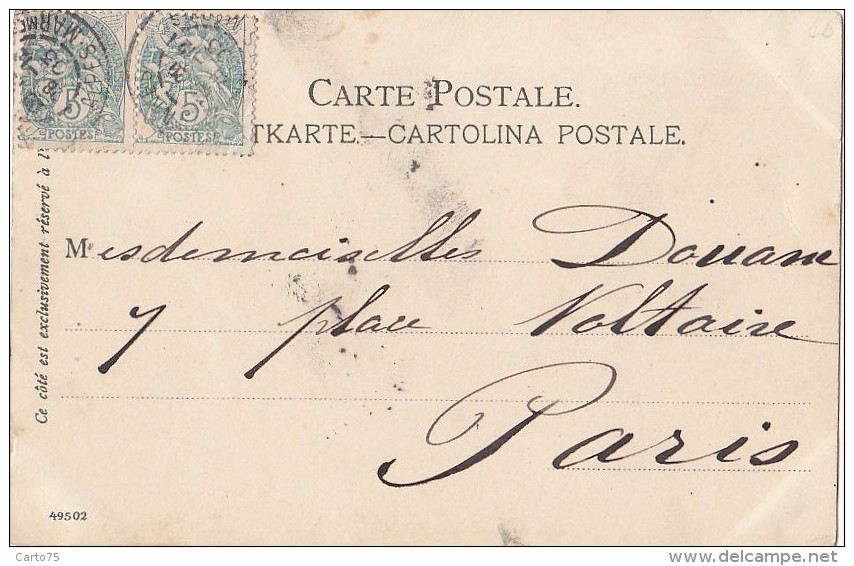 CARTE POSTALE.
TKARTE.—CARTOLINA POSTALE.
5
POSTES
5
POSTES
Ce côté est exclusivement réservé à l'
Mesdemoiselles Douane
7 place Voltaire
Paris
49502
Carto75
delcampe.net